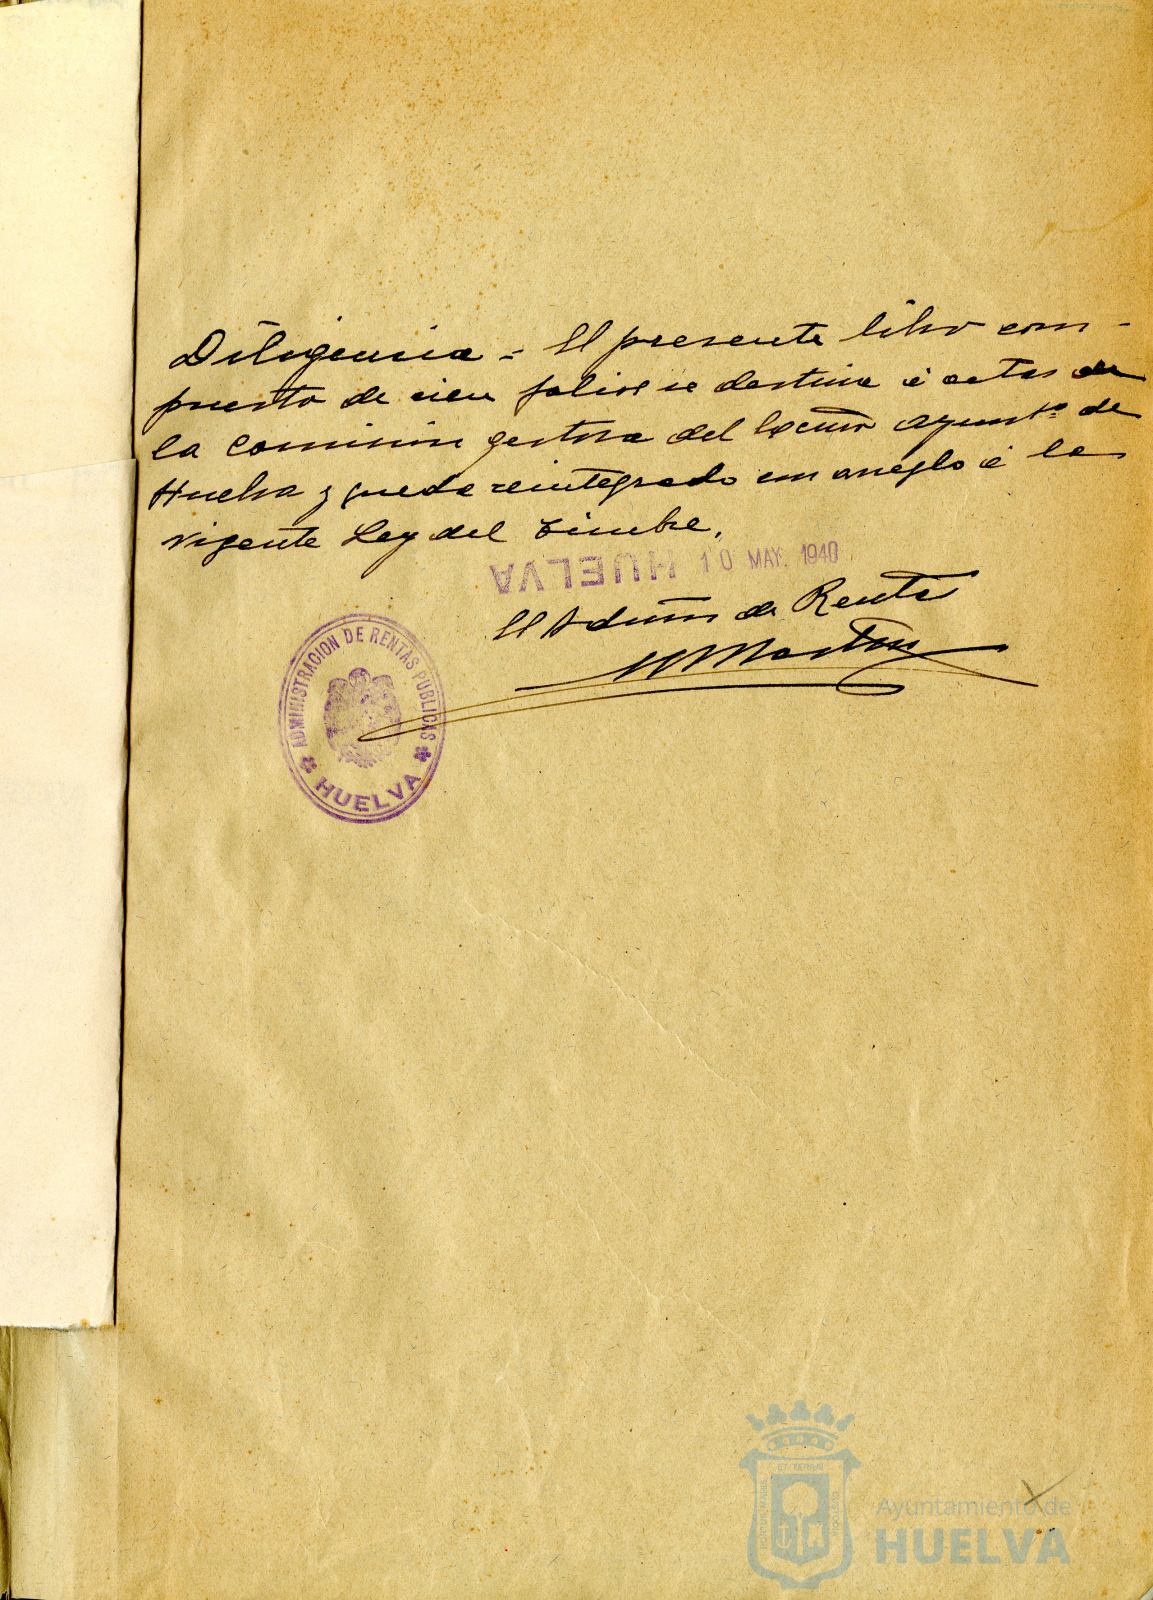 Diligencia = El presente libro com-
puesto de cien folios se destina á actas de
la Comisión gestora del Excmo Ayuntº de
Huelva y queda reintegrado con arreglo á la
vigente Ley del Timbre.
HUELVA 10 MAY. 1940
El Admon de Rentas
ADMINISTRACION DE RENTAS PUBLICAS
HUELVA
Ayuntamiento de
HUELVA